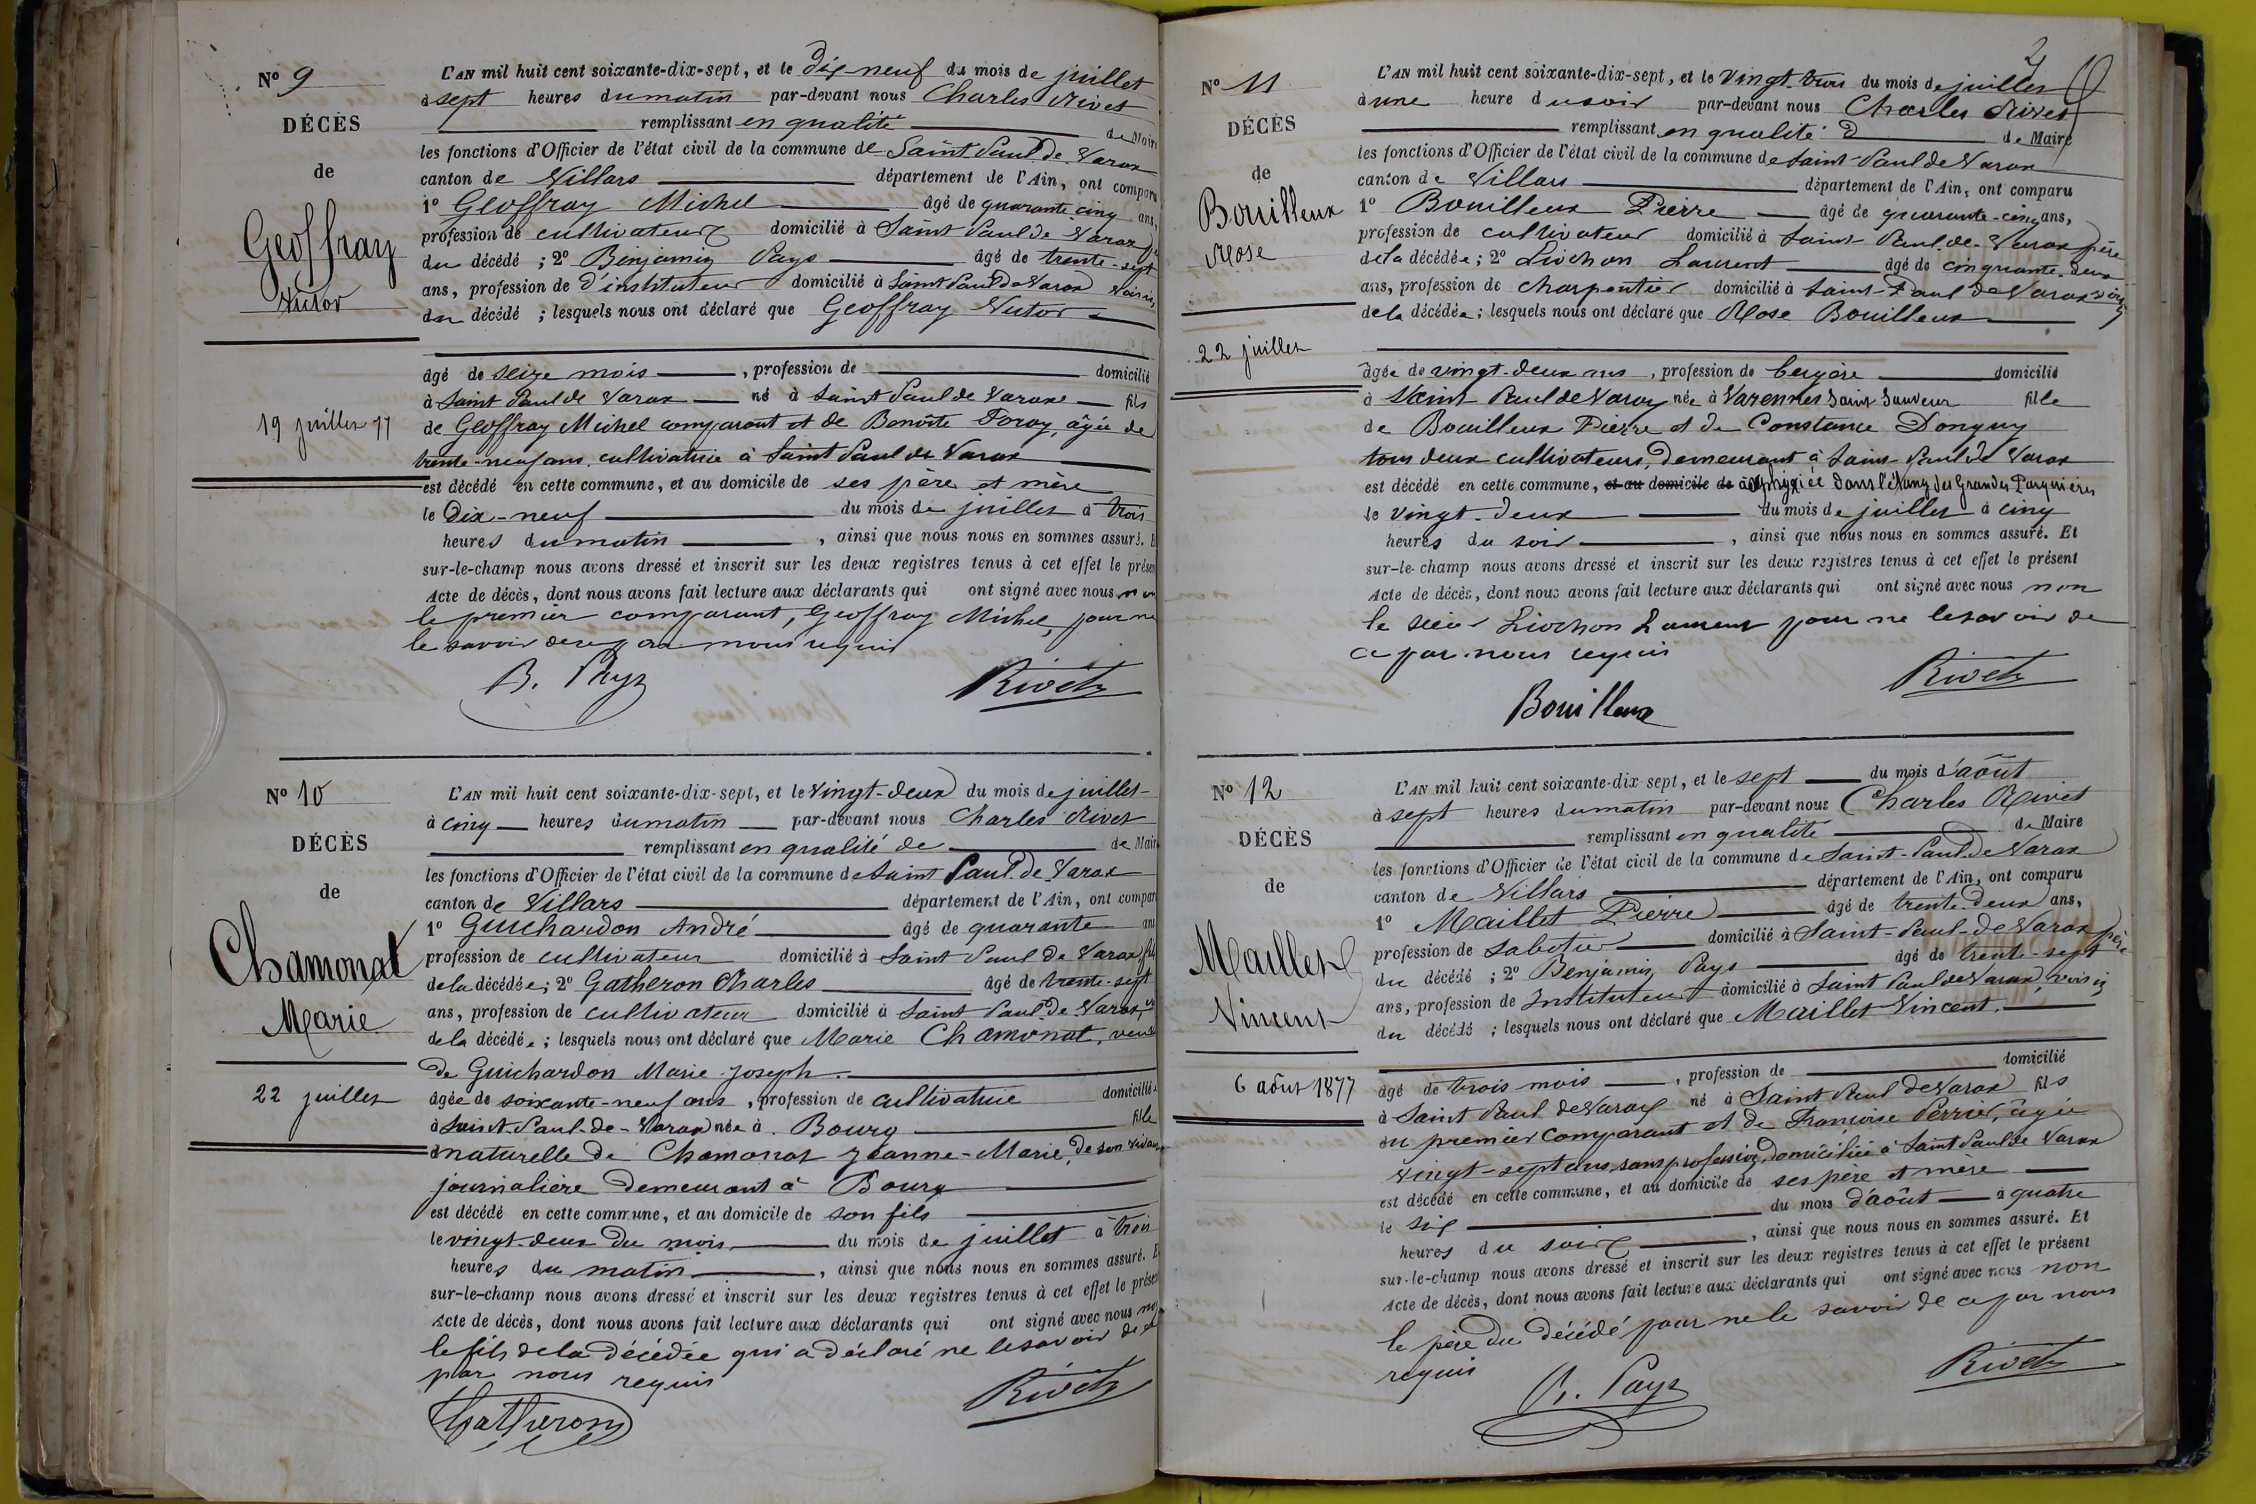 Nº 9
DÉCÈS
de
Geoffray
Victor
19 juillet 77
L'AN mil huit cent soixante-dix-sept, et le dix-neuf du mois de juillet
à sept heures du matin par-devant nous Charles Rivet
remplissant en qualité de Maire
les fonctions d'Officier de l'état civil de la commune de Saint Paul de Varax
canton de Villars département de l'Ain, ont comparu
1º Geoffray Michel âgé de quarante-cinq ans,
profession de cultivateur domicilié à Saint Paul de Varax
du décédé ; 2º Benjamin Pays âgé de trente-sept
ans, profession de d'instituteur domicilié à Saint Paul de Varax voisin
du décédé ; lesquels nous ont déclaré que Geoffray Victor
âgé de seize mois , profession de domicilié
à Saint Paul de Varax né à Saint Paul de Varax fils
de Geoffray Michel comparant et de Benoîte Foray, âgée de
trente-neuf ans, cultivatrice à Saint Paul de Varax
est décédé en cette commune, et au domicile de ses père et mère
le Dix-neuf du mois de juillet à trois
heures du matin , ainsi que nous nous en sommes assuré. E
sur-le-champ nous avons dressé et inscrit sur les deux registres tenus à cet effet le présen
Acte de décès, dont nous avons fait lecture aux déclarants qui ont signé avec nous non
le premier comparant, Geoffray Michel, pour ne
le savoir de ce par nous requis
B. Pays Rivet
Nº 10
DÉCÈS
de
Chamonat
Marie
22 juillet
L'AN mil huit cent soixante-dix-sept, et le vingt-deux du mois de juillet
à cinq heures du matin par-devant nous Charles Rivet
remplissant en qualité de de Maire
les fonctions d'Officier de l'état civil de la commune de Saint Paul de Varax
canton de Villars département de l'Ain, ont compar
1º Guichardon André âgé de quarante ans
profession de cultivateur domicilié à Saint Paul de Varax fils
de la décédée ; 2º Gatheron Charles âgé de trente-sept
ans, profession de cultivateur domicilié à Saint Paul de Varax
de la décédée ; lesquels nous ont déclaré que Marie Chamonat, veuve
de Guichardon Marie Joseph.
âgée de soixante-neuf ans , profession de cultivatrice domiciliée
à Saint-Paul-de-Varax née à Bourg fille
naturelle de Chamonat Jeanne-Marie, de son vivant
journalière demeurant à Bourg
est décédé en cette commune, et au domicile de son fils
le vingt-deux du mois du mois de juillet à trois
heures du matin , ainsi que nous nous en sommes assuré. E
sur-le-champ nous avons dressé et inscrit sur les deux registres tenus à cet effet le présen
Acte de décès, dont nous avons fait lecture aux déclarants qui ont signé avec nous non
le fils de la décédée qui a déclaré ne le savoir de ce
par nous requis
Gatheron Rivet
2
Nº 11
DÉCÈS
de
Bouilleux
Rose
22 juillet
L'AN mil huit cent soixante-dix-sept, et le vingt-trois du mois de juillet
à une heure du soir par-devant nous Charles Rivet
remplissant en qualité d de Maire
les fonctions d'Officier de l'état civil de la commune de Saint-Paul de Varax
canton de Villars département de l'Ain, ont comparu
1º Bouilleux Pierre âgé de quarante-cinq ans,
profession de cultivateur domicilié à Saint-Paul-de-Varax père
de la décédée ; 2º Liochon Laurent âgé de cinquante-deux
ans, profession de charpentier domicilié à Saint-Paul de Varax voisin
de la décédée ; lesquels nous ont déclaré que Rose Bouilleux
âgée de vingt-deux ans , profession de bergère domicilié
à Saint Paul de Varax née à Varennes Saint Sauveur fille
de Bouilleux Pierre et de Constance Donguy
tous deux cultivateurs, demeurant à Saint-Paul de Varax
est décédé en cette commune, et au domicile de asphyxiée dans l'étang des Grandes
le vingt-deux du mois de juillet à cinq
heures du soir , ainsi que nous nous en sommes assuré. Et
sur-le-champ nous avons dressé et inscrit sur les deux registres tenus à cet effet le présent
Acte de décès, dont nous avons fait lecture aux déclarants qui ont signé avec nous non
le sieur Liochon Laurent pour ne le savoir de
ce par nous requis
Bouilleux Rivet
Nº 12
DÉCÈS
de
Maillet
Vincent
6 août 1877
L'AN mil huit cent soixante-dix-sept, et le sept du mois d'août
à sept heures du matin par-devant nous Charles Rivet
remplissant en qualité de Maire
les fonctions d'Officier de l'état civil de la commune de Saint-Paul de Varax
canton de Villars département de l'Ain, ont comparu
1º Maillet Pierre âgé de trente-deux ans,
profession de sabotier domicilié à Saint-Paul-de-Varax père
du décédé ; 2º Benjamin Pays âgé de trente-sept
ans, profession de Instituteur domicilié à Saint Paul de Varax, voisin
du décédé ; lesquels nous ont déclaré que Maillet Vincent.
âgé de trois mois , profession de domicilié
à Saint Paul de Varax né à Saint Paul de Varax fils
du premier comparant et de Françoise Perrier, âgée
vingt-sept ans, sans profession, domiciliée à Saint Paul de Varax
est décédé en cette commune, et au domicile de ses père et mère
le six du mois d'août à quatre
heures du soir , ainsi que nous nous en sommes assuré. Et
sur-le-champ nous avons dressé et inscrit sur les deux registres tenus à cet effet le présent
Acte de décès, dont nous avons fait lecture aux déclarants qui ont signé avec nous non
le père du décédé pour ne le savoir de ce par nous
requis
B. Pays Rivet